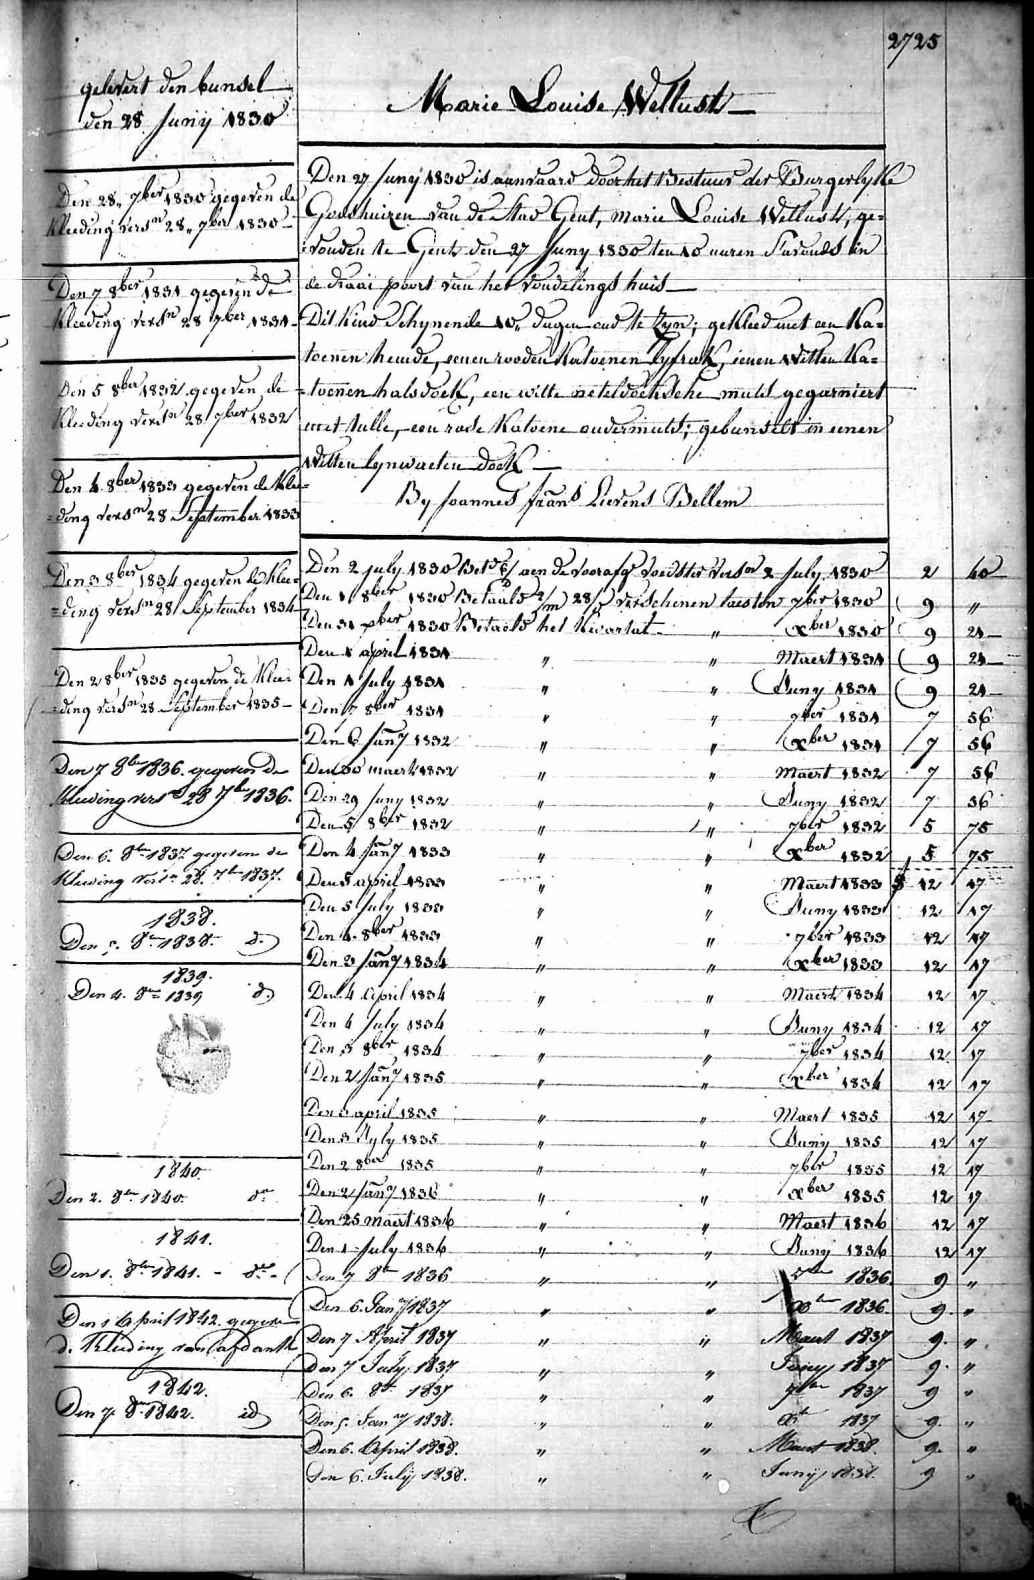 2725
gelevert den bunsel
den 28 Junij 1830
Marie Louise Wellust
Den 28,, 7ber 1830 gegeven de
kleeding versn 28,, 7ber 1830
Den 7 8ber 1831 gegeven de
kleeding versn 28 7ber 1831
Den 5 8ber 1832 gegeven de
kleeding versn 28 7ber 1832
Den 4 8ber 1833 gegeven de klee=
=ding versn 28 September 1833
Den 3 8ber 1834 gegeven de klee=
=ding versn 28 September 1834
Den 2 8ber 1835 gegeven de klee=
=ding versn 28 September 1835
Den 7 8bre 1836. gegeven de
kleeding versn 28 7bre 1836.
Den 6. 8bre 1837 gegeven de
kleeding versn 28. 7bre 1837.
1838.
Den 5. 8re 1838. do
1839.
Den 4. 8re 1839 do
1840.
Den 2. 8re 1840. do
1841.
Den 1. 8re 1841. - do -
Den 16 April 1842. gegeven
de kleeding van afdank
1842.
Den 7 8re 1842. id
Den 27 Junij 1830 is aanvaard door het Bestuur der Burgerlyke
Godshuizen van de Stad Gent, Marie Louise Wellust, ge=
vonden te Gent den 27 Juny 1830 ten 10 uuren s'avonds in
de draai poort van het vondelings huis
Dit kind schynende 10,, dagen oud te zyn; gekleed met een ka=
toenen hemde, eenen rooden katoenen lyfrok, eenen witten ka=
=toenen halsdoek, een witte neteldoeksche muts gegarniert
met tulle, een rose katoene ondermuts; gebunselt in eenen
witten lynwaeten doek
By Joannes frans Lievens Bellem
Den 2 july 1830 aen de voedster versn 2 July 1830 2 40
Den 1 8ber 1830 Betaald verschenen 7ber 1830 9 "
Den 31 xber 1830 Betaald het kwartal " xber 1830 9 24
Den 1 april 1831 " " Maert 1831 9 24
Den 1 July 1831 " " Juny 1831 9 24
Den 7 8ber 1831 " " 7ber 1831 7 56
Den 6 Jany 1832 " " xber 1831 7 56
Den 30 maert 1832 " " Maert 1832 7 56
Den 29 Juny 1832 " " Juny 1832 7 56
Den 5 8ber 1832 " " 7ber 1832 5 75
Den 4 Jany 1833 " " xber 1832 5 75
Den 5 april 1833 " " Maert 1833 12 17
Den 5 July 1833 " " Juny 1833 12 17
Den 4 8ber 1833 " " 7ber 1833 12 17
Den 3 Jany 1834 " " xber 1833 12 17
Den 4 April 1834 " " Maert 1834 12 17
Den 4 July 1834 " " Juny 1834 12 17
Den 3 8ber 1834 " " 7ber 1834 12 17
Den 2 Jany 1835 " " xber 1834 12 17
Den 3 april 1835 " " Maert 1835 12 17
Den 3 July 1835 " " Juny 1835 12 17
Den 2 8ber 1835 " " 7ber 1835 12 17
Den 2 Jany 1836 " " xber 1835 12 17
Den 25 Maert 1836 " " Maert 1836 12 17
Den 1 July 1836 " " Juny 1836 12 17
Den 7 8re 1836 " " 7bre 1836 9 "
Den 6. Jany 1837 " " xbre 1836. 9. "
Den 7 April 1837 " " Maert 1837 9. "
Den 7 July 1837 " " Juny 1837 9. "
Den 6. 8re 1837 " " 7bre 1837 9 "
Den 5. Jany 1838. " " xbre 1837 9. "
Den 6. April 1838. " " Maert 1838. 9. "
Den 6. July 1838. " " Junij 1838. 9 "